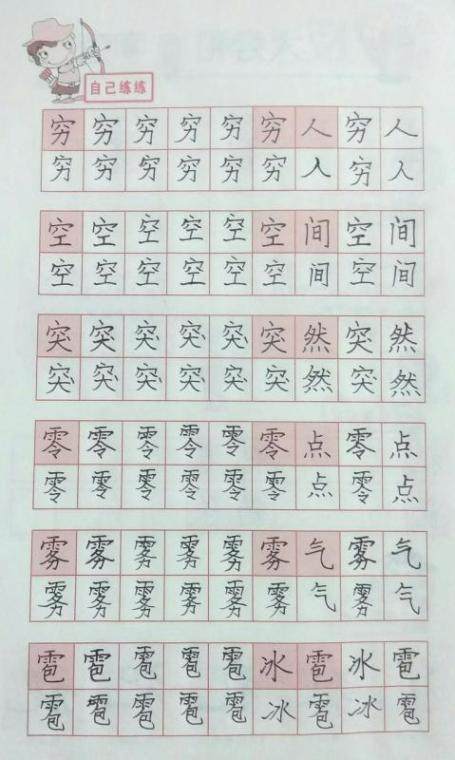 自己练练
穷穷穷穷穷穷人穷人
穷穷穷穷穷穷人穷人
空空空空空空间空间
空空空空空空间空间
突突突突突突然突然
突突突突突突然突然
零零零零零零点零点
零零零零零零点零点
雾雾雾雾雾雾气雾气
雾雾雾雾雾雾气雾气
雹雹雹雹雹冰雹冰雹
雹雹雹雹雹冰雹冰雹